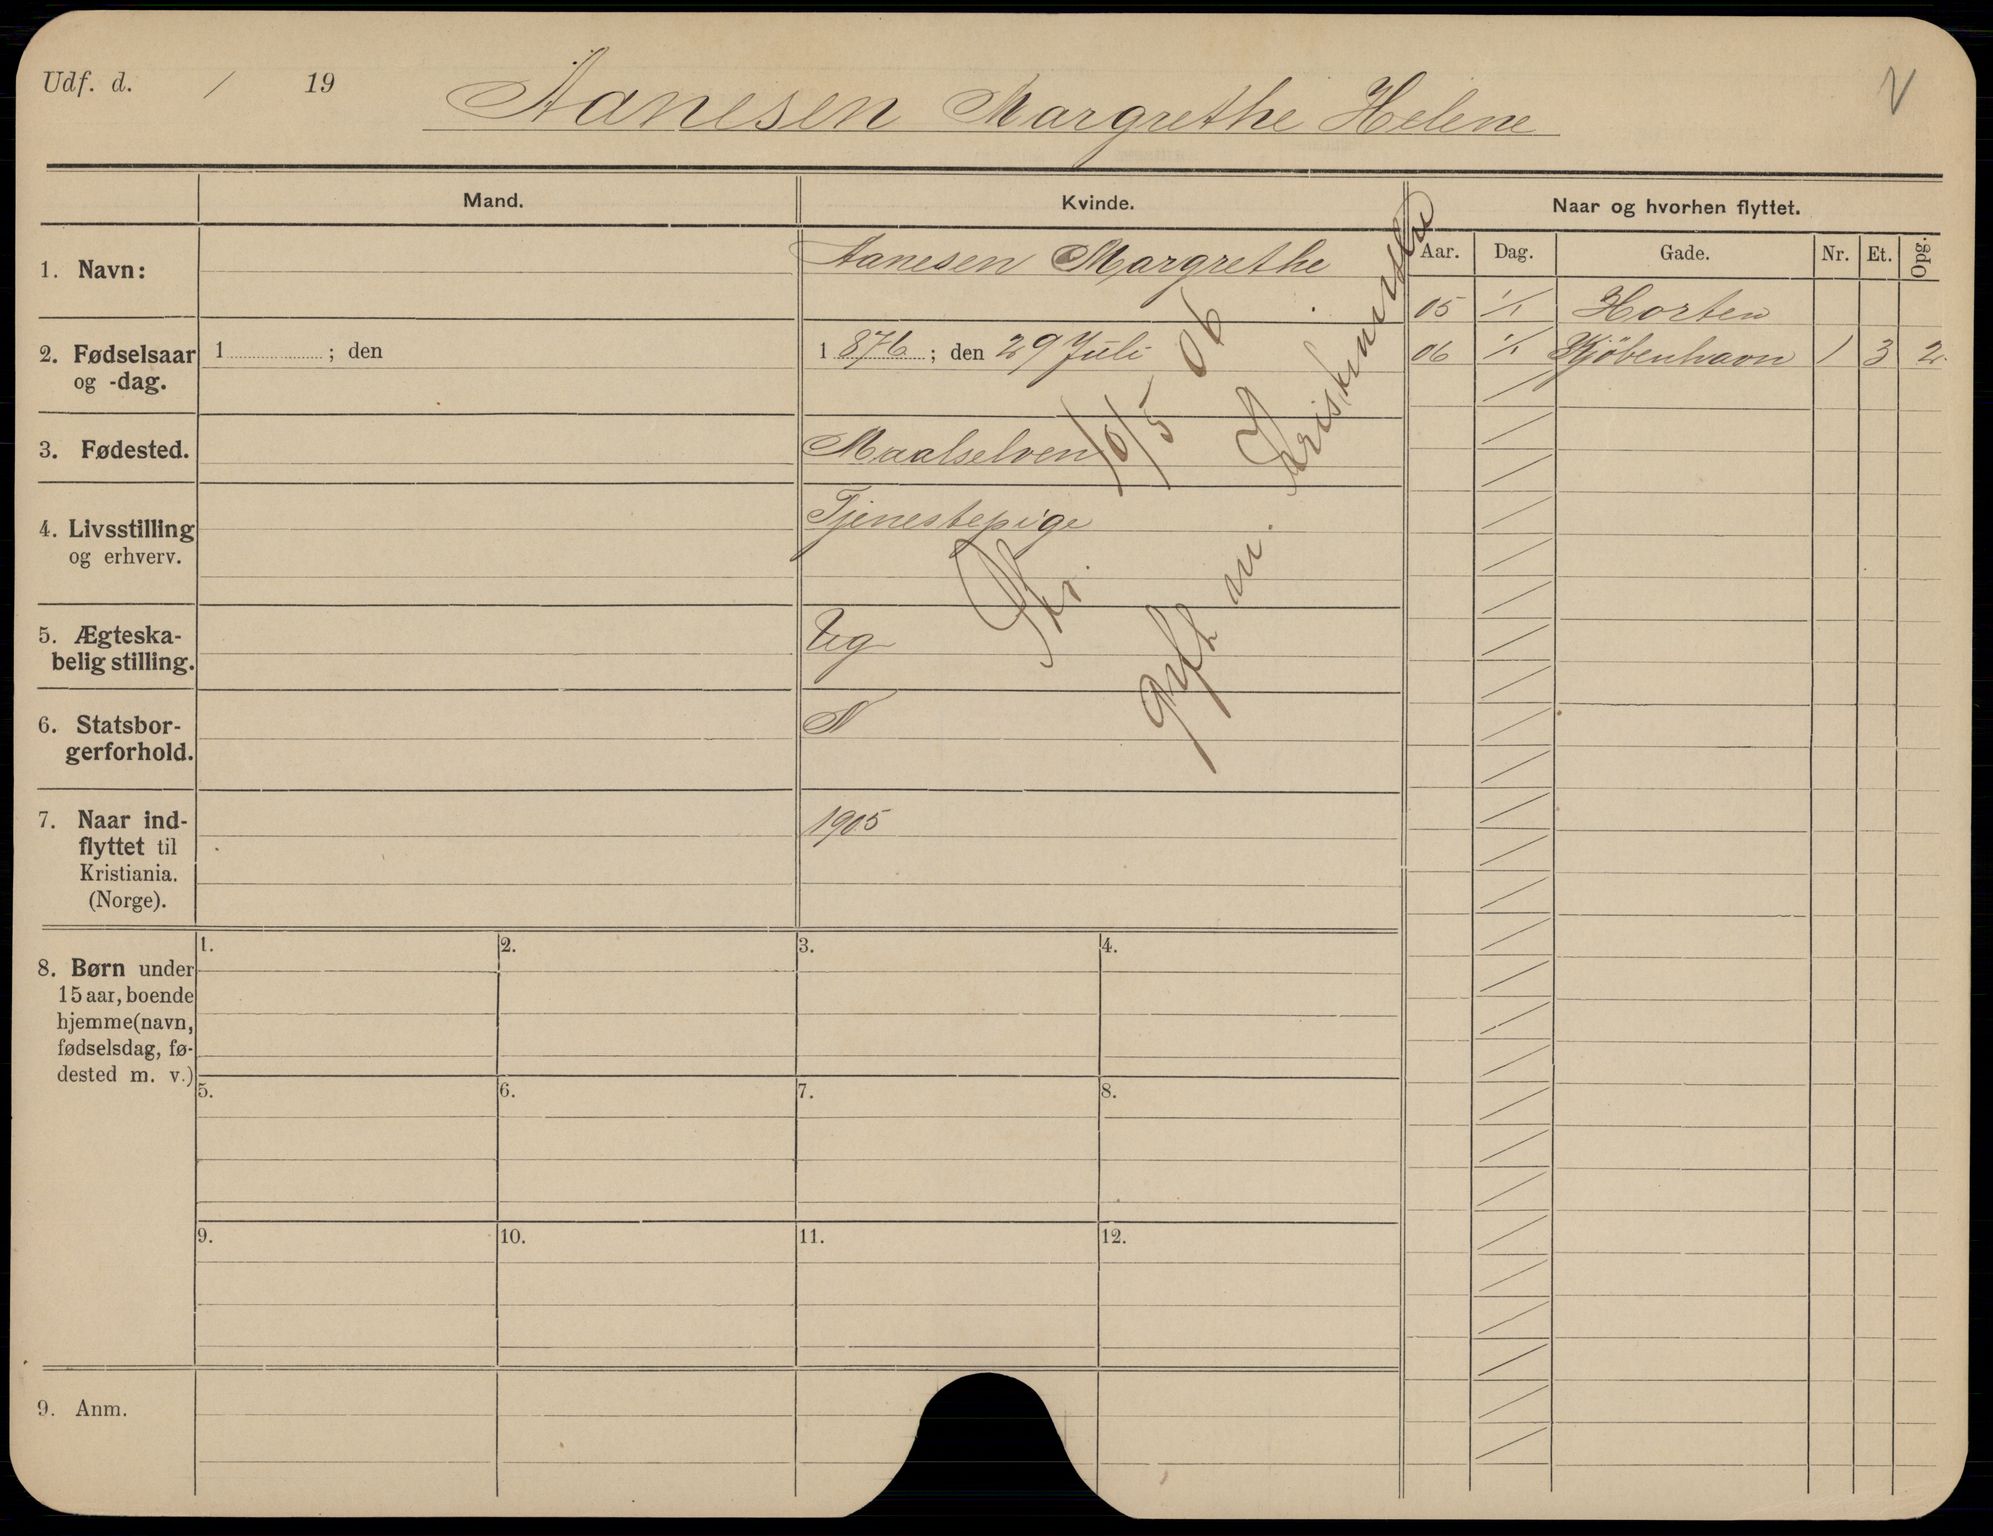 Udf. d. / 19
Aanesen Margrethe Helene
V
Mand.
Kvinde.
Naar og hvorhen flyttet.
Aar. Dag. Gade. Nr. Et. Opg.
1. Navn:
Aanesen Margrethe
05 1/1 Horten
06 1/1 Kjøbenhavn 1 3 2.
2. Fødselsaar
og -dag.
1 ; den
1 876 ; den 29 Juli
3. Fødested.
Maalselven
4. Livsstilling
og erhverv.
Tjenestepige
5. Ægteska-
belig stilling.
Ug
6. Statsbor-
gerforhold.
N
7. Naar ind-
flyttet til
Kristiania.
(Norge).
1905
10/5 06
Gift m.
8. Børn under
15 aar, boende
hjemme (navn,
fødselsdag, fø-
dested m. v.)
1. 2. 3. 4.
5. 6. 7. 8.
9. 10. 11. 12.
9. Anm.